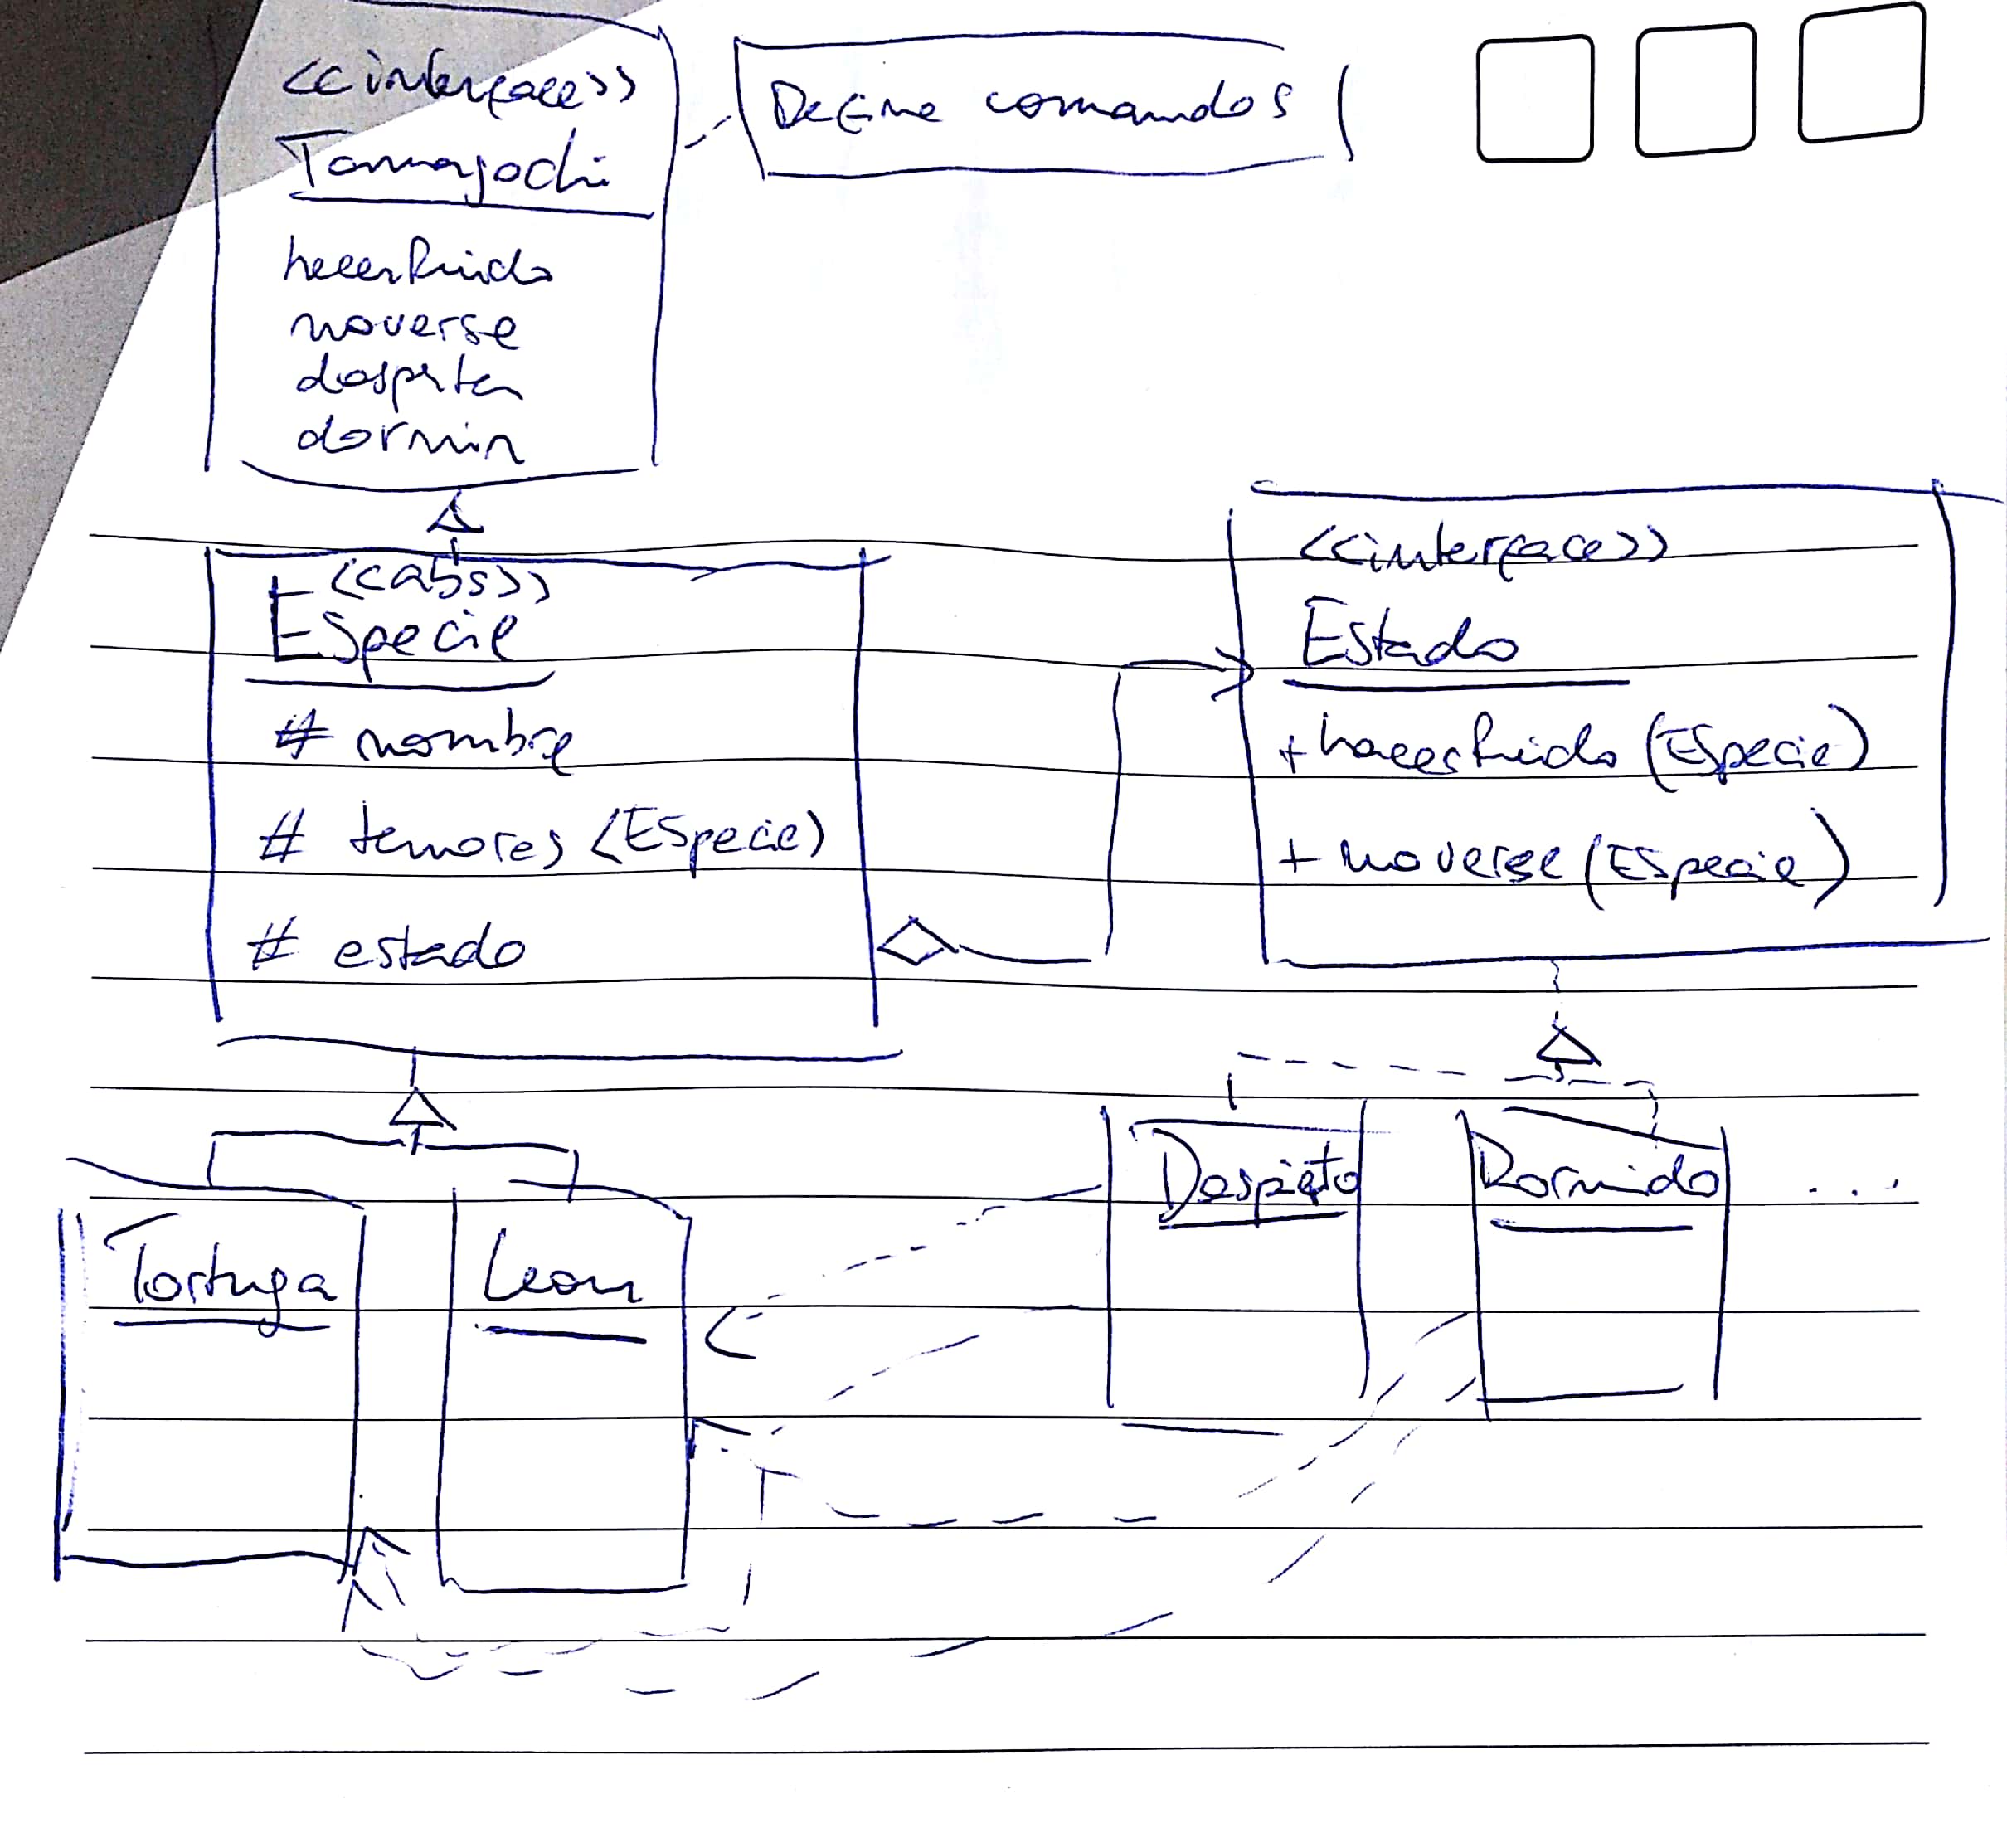 <<interface>>
Tamagochi
hacerRuido
moverse
despertar
dormir
Define comandos
<<abs>>
Especie
# nombre
# temores <Especie>
# estado
<<interface>>
Estado
+ hacerRuido (Especie)
+ moverse (Especie)
Tortuga
Leon
Despierto
Dormido
...